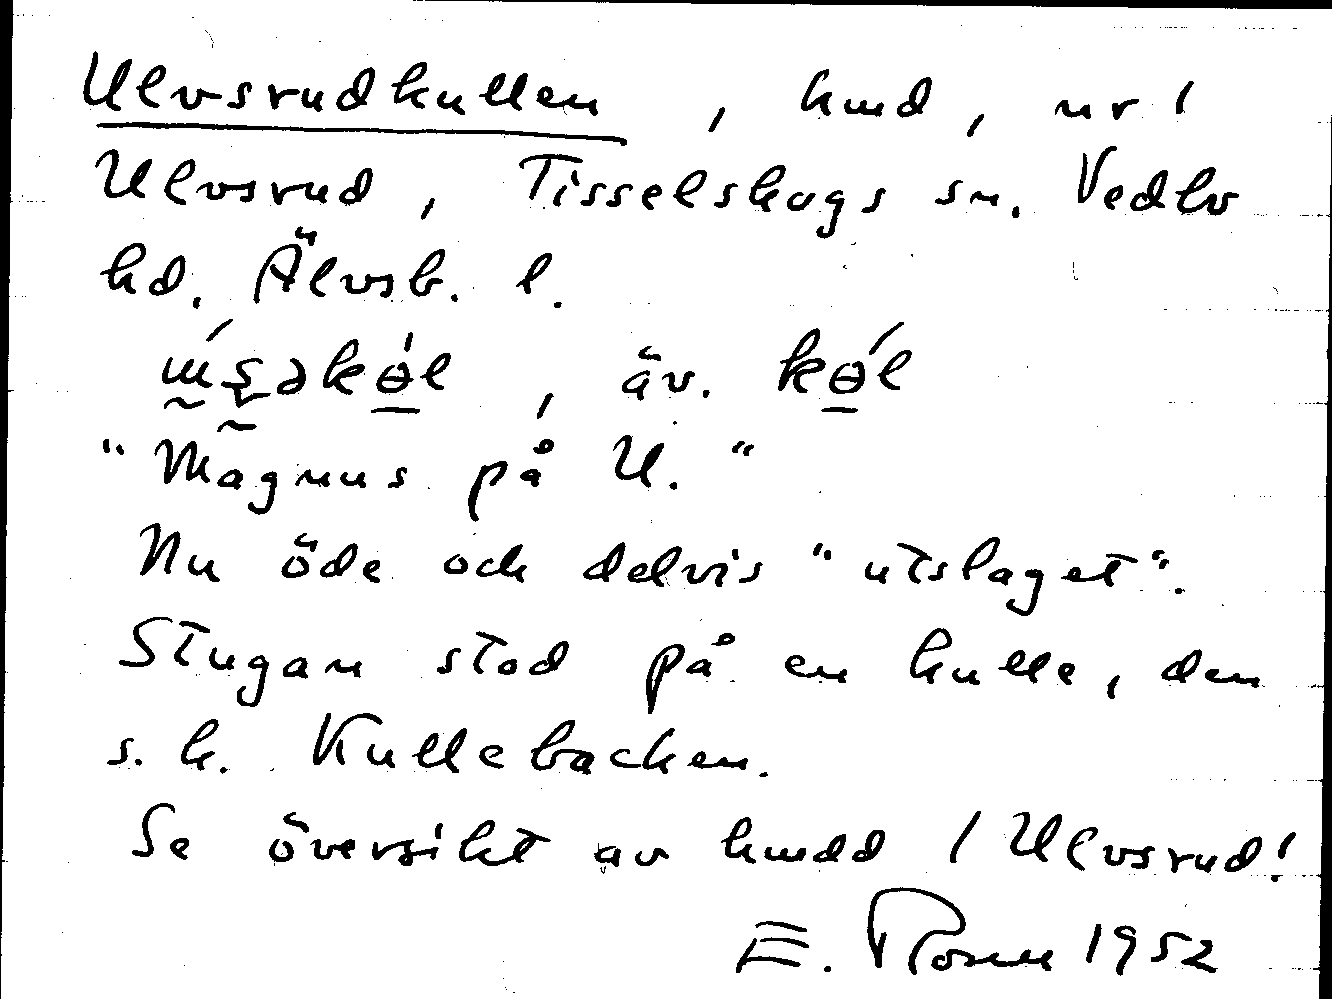 Ulvsrudkullen, hmd, ur /
Ulvsrud, Tisselskogs sn. Vedbo
hd. Älvsb. l.
, äv. kɵ́l
"Magnus på U."
Nu öde och delvis "utslaget".
Stugan stod på en kulle, den
s.k. Kullebacken.
Se översikt av hmdd / Ulvsrud!
E. 1952